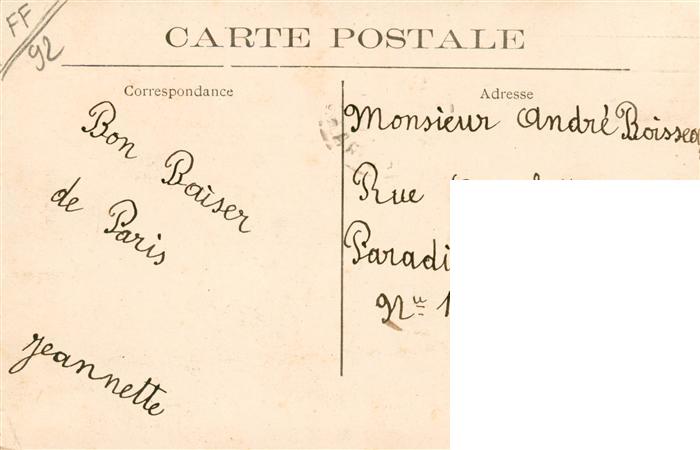 FF
92
CARTE POSTALE
Correspondance
Bon Baiser
de Paris
Jeannette
Adresse
Monsieur André
Rue
Nº